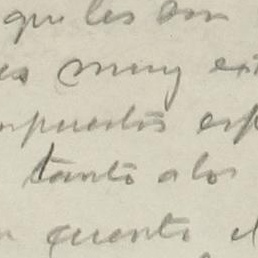 que les son
es muy
mpuestos esp
tanto a los
n cuanto el